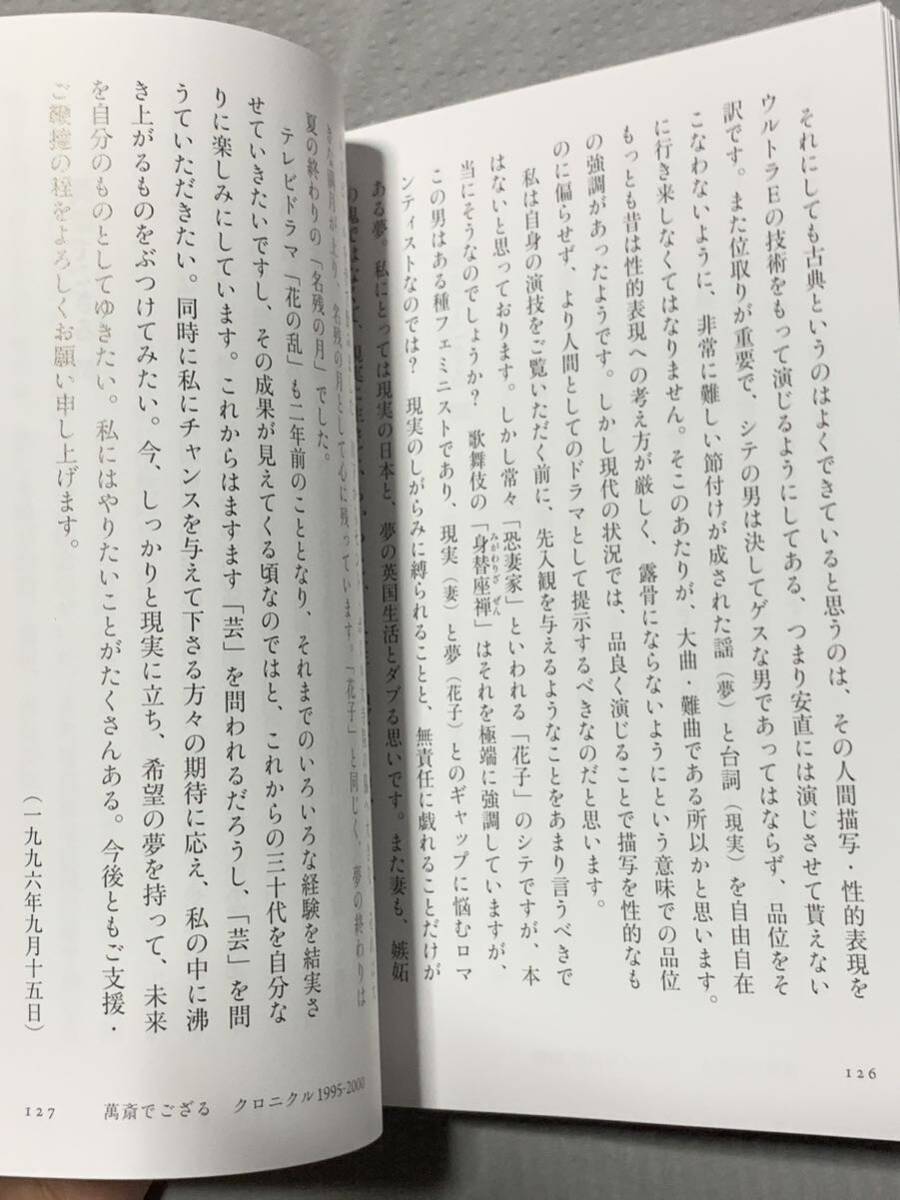 それにしても古典というのはよくできていると思うのは、その人間描写・性的表現を
ウルトラEの技術をもって演じるようにしてある、つまり安直には演じさせて貰えない
訳です。また位取りが重要で、シテの男は決してゲスな男であってはならず、品位をそ
こなわないように、非常に難しい節付けが成された謡（夢）と台詞（現実）を自由自在
に行き来しなくてはなりません。そこのあたりが、大曲・難曲である所以かと思います。
もっとも昔は性的表現への考え方が厳しく、露骨にならないようにという意味での品位
の強調があったようです。しかし現代の状況では、品良く演じることで描写を性的なも
のに偏らせず、より人間としてのドラマとして提示するべきなのだと思います。
私は自身の演技をご覧いただく前に、先入観を与えるようなことをあまり言うべきで
はないと思っております。しかし常々「恐妻家」といわれる「花子」のシテですが、本
当にそうなのでしょうか？　歌舞伎の「身替座禅」はそれを極端に強調していますが、
みがわりざぜん
この男はある種フェミニストであり、現実（妻）と夢（花子）とのギャップに悩むロマ
ンティストなのでは？　現実のしがらみに縛られることと、無責任に戯れることだけが
ある夢。私にとっては現実の日本と、夢の英国生活とダブる思いです。また妻も、嫉妬
の鬼ではなくて、現実に生き
126
名残の月として心に残っています。「花子」と同じく、夢の終わりは
夏の終わりの「名残の月」でした。
テレビドラマ「花の乱」も二年前のこととなり、それまでのいろいろな経験を結実さ
せていきたいですし、その成果が見えてくる頃なのではと、これからの三十代を自分な
りに楽しみにしています。これからはますます「芸」を問われるだろうし、「芸」を問
うていただきたい。同時に私にチャンスを与えて下さる方々の期待に応え、私の中に沸
き上がるものをぶつけてみたい。今、しっかりと現実に立ち、希望の夢を持って、未来
を自分のものとしてゆきたい。私にはやりたいことがたくさんある。今後ともご支援・
ご鞭撻の程をよろしくお願い申し上げます。
（一九九六年九月十五日）
127　萬斎でござる　クロニクル1995-2000